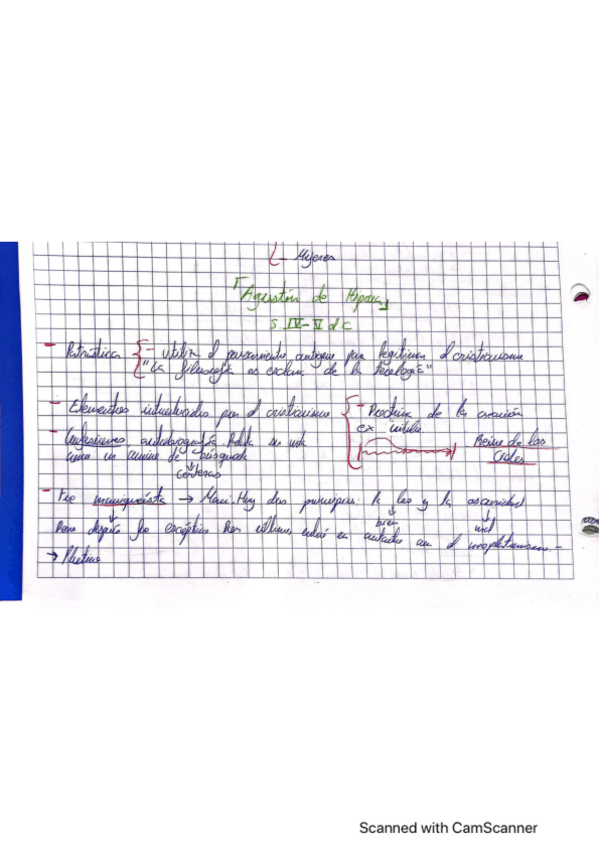 - Mujeres
Agustín de Hipona
s. IV-V d.C
- Patrística - utiliza el pensamiento antiguo para legitimar el cristianismo
"La filosofía es esclava de la teología"
- Elementos introducidos por el cristianismo - Doctrina de la creación
ex nihilo
Reino de los
Cielos
- Confesiones, autobiografía. Relata su vida
como un camino de búsqueda
certezas
- Fue maniqueísta → Mani. Hay dos principios: la luz y la oscuridad
bien mal
Pero después fue escéptico. Por último, entró en contacto con el neoplatonismo.-
→ Plotino
Scanned with CamScanner